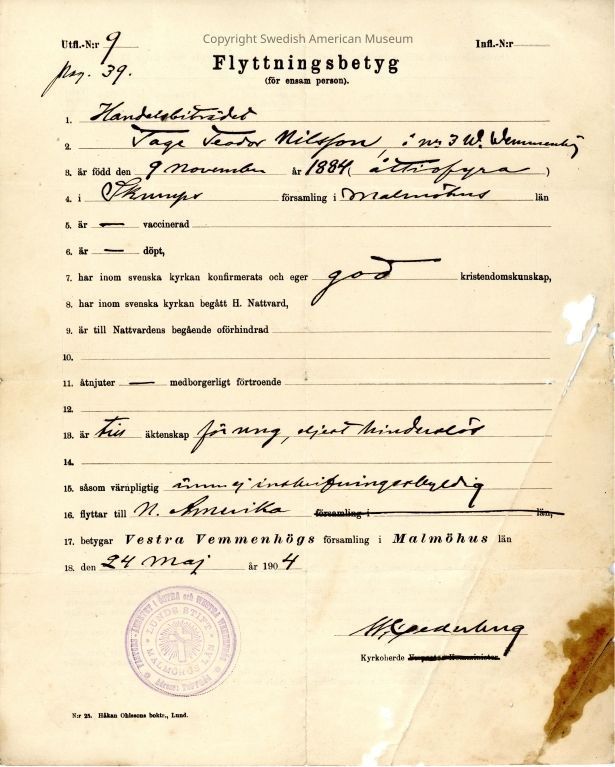 Copyright Swedish American Museum
Utfl.-N:r 9
Infl.-N:r
pag. 39.
Flyttningsbetyg
(för ensam person).
1. Handelsbiträdet
2. Tage Teodor Nilsson, i nr 3 W. Wemmenhög
3. är född den 9 November år 1884 (åttiofyra)
4. i Skurups församling i Malmöhus län
5. är — vaccinerad
6. är — döpt,
7. har inom svenska kyrkan konfirmerats och eger god kristendomskunskap,
8. har inom svenska kyrkan begått H. Nattvard,
9. är till Nattvardens begående oförhindrad
10.
11. åtnjuter — medborgerligt förtroende
12.
13. är till äktenskap för ung, eljest hinderslös
14.
15. såsom värnpligtig ännu ej inskrifningsskyldig
16. flyttar till N. Amerika församling i län,
17. betygar Vestra Vemmenhögs församling i Malmöhus län
18. den 24 Maj år 1904
LUNDS STIFT
MALMÖHUS LÄN
Kyrkoherde
N:r 25. Håkan Ohlssons boktr., Lund.